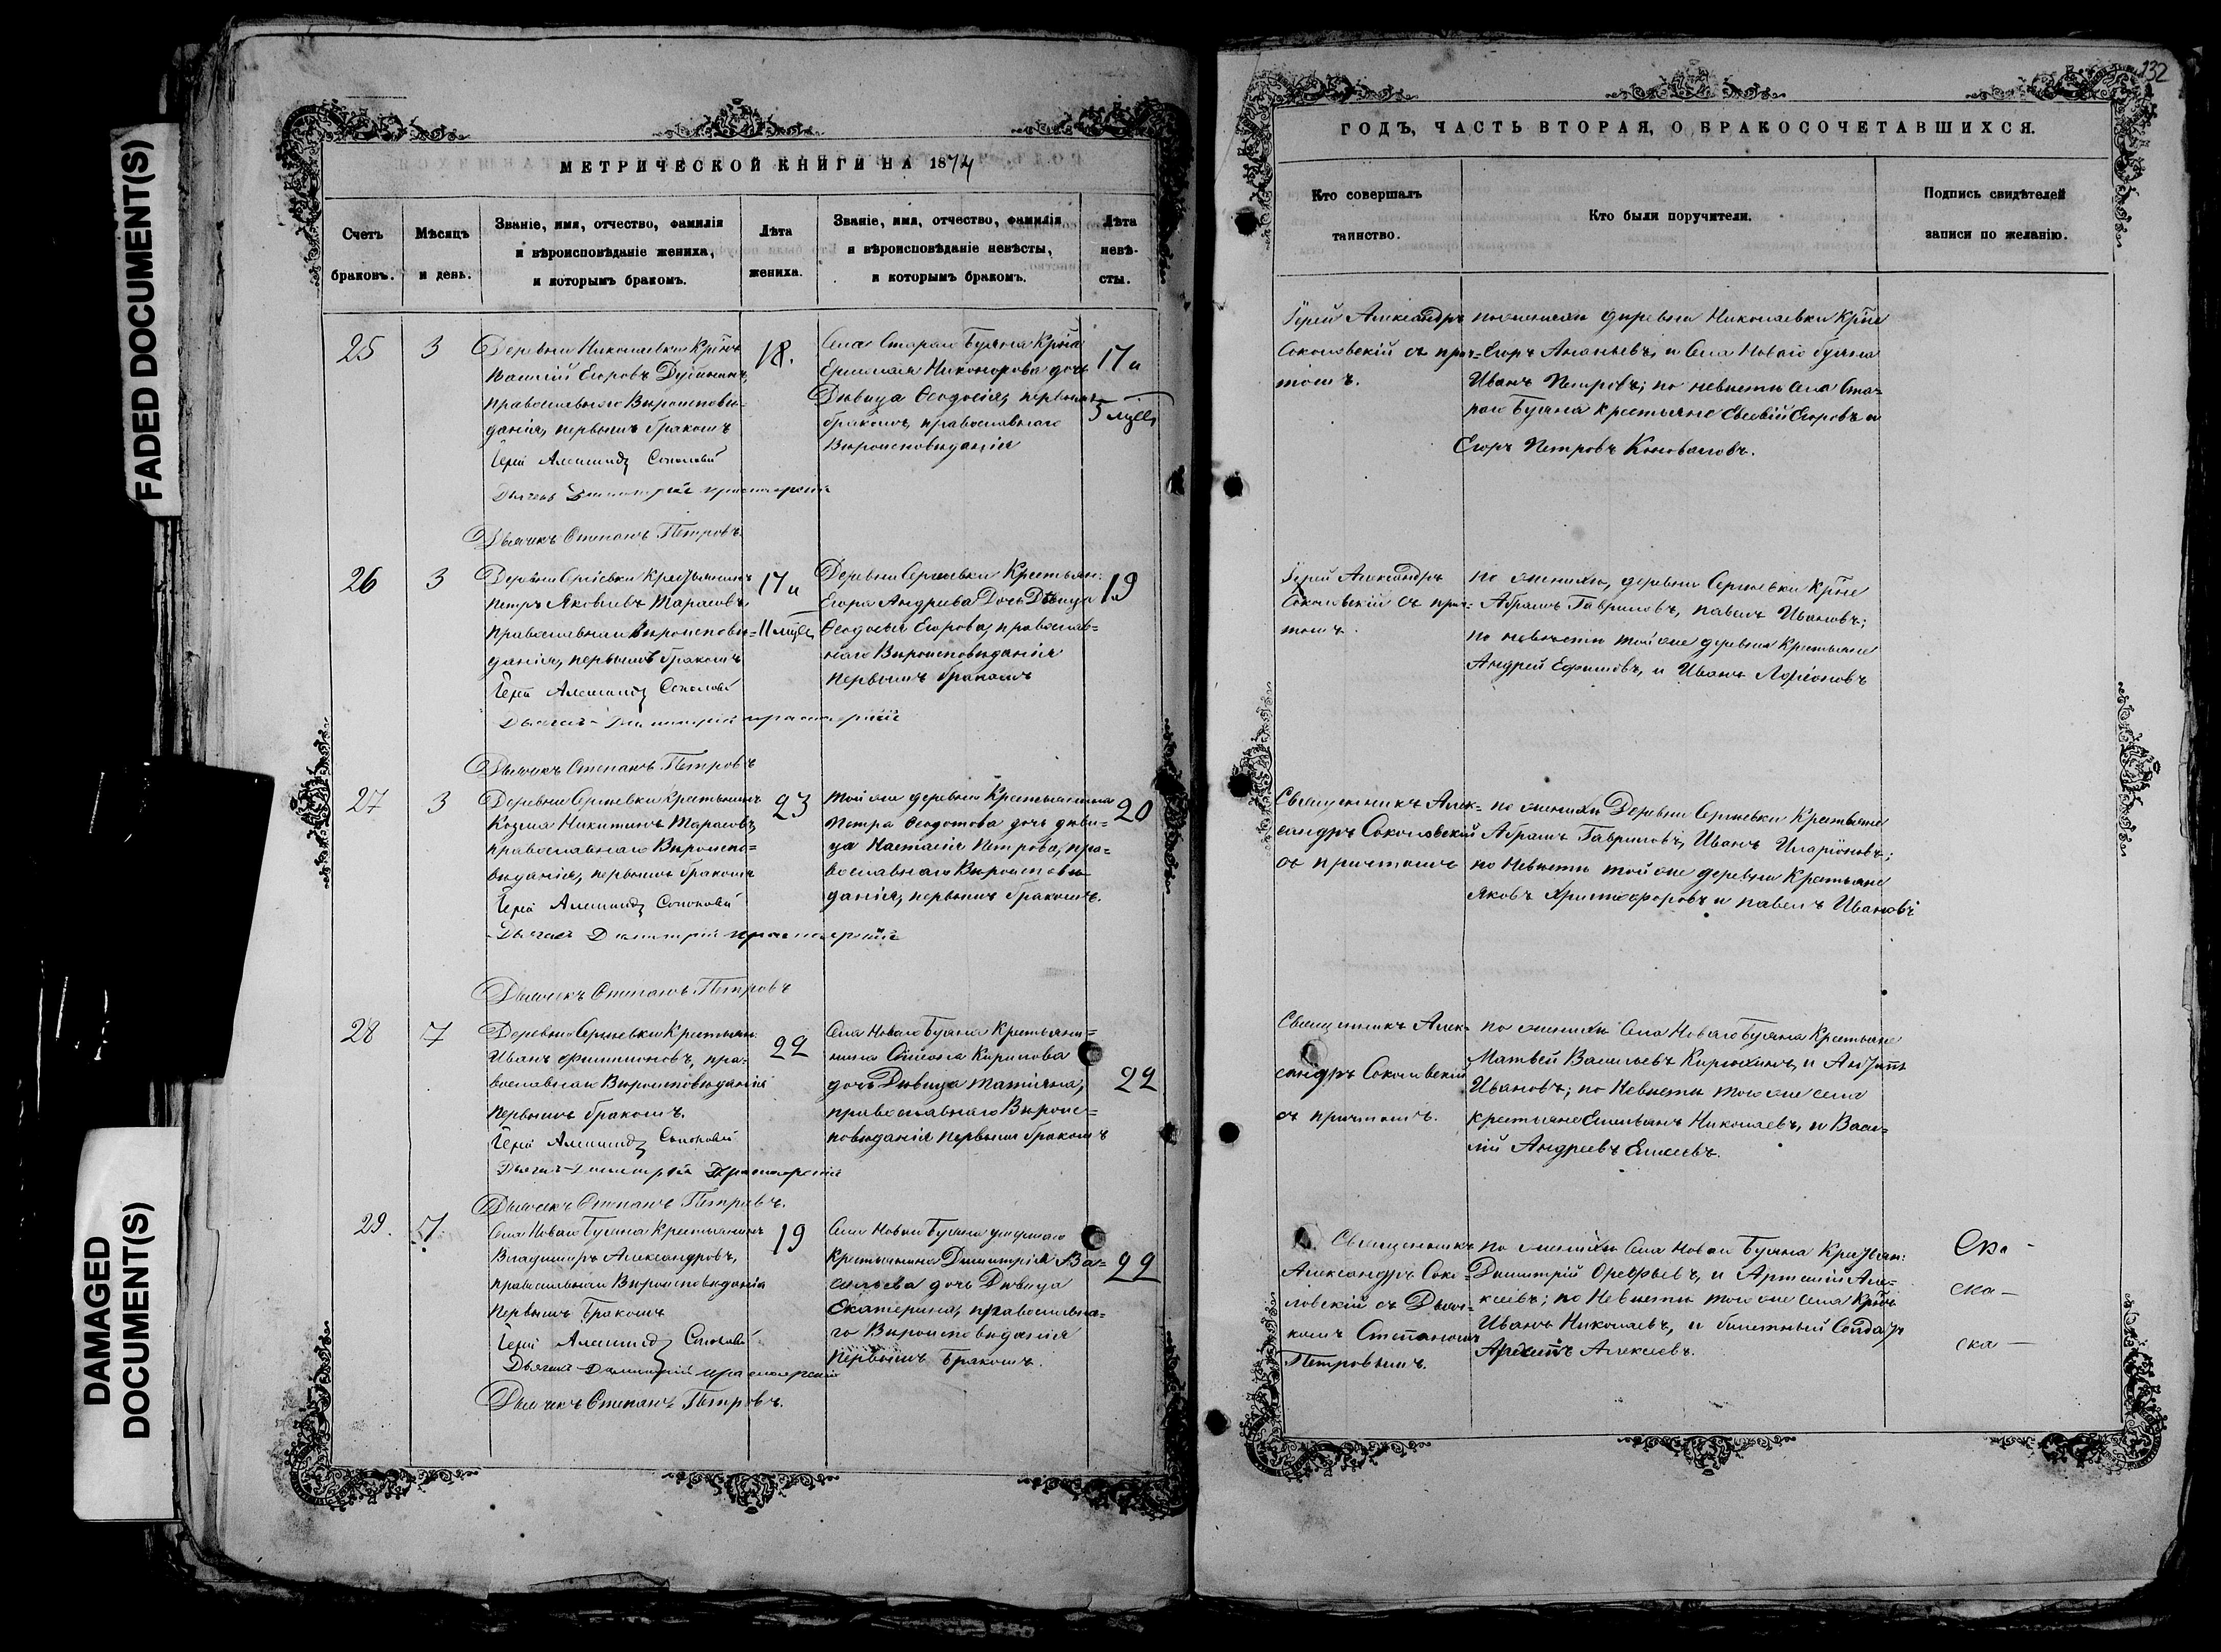 FADED DOCUMENT(S)
DAMAGED
DOCUMENT(S)
МЕТРИЧЕСКОЙ КНИГИ НА 1874
Счетъ
браковъ.
Мѣсяцъ
и день.
Званіе, имя, отчество, фамилія
и вѣроисповѣданіе жениха,
и которымъ бракомъ.
Лѣта
жениха.
Званіе, имя, отчество, фамилія
и вѣроисповѣданіе невѣсты,
и которымъ бракомъ.
Лѣта
невѣ-
сты.
25
3
Деревни Николаевки
Василій Егоровъ
православнаго Вѣроисповѣ-
данія, первымъ бракомъ
Іерей
Дьячекъ Степанъ Петровъ
18.
Села Стараго Буяна
Никонорова дочь
Дѣвица Ѳеодосія, первымъ
бракомъ, православнаго
Вѣроисповѣданія
17 и
5 мцсв
26
3
Деревни Сергіевки Крестьянинъ
Петръ Яковлевъ Тарасовъ
православнаго Вѣроисповѣ-
данія, первымъ бракомъ
Іерей
Дьячекъ Степанъ Петровъ
17 и
11 мцсв
Деревни Сергіевки Крестьян:
Егора Андреева Дочь Дѣвица
Ѳеодосья Егорова, православ-
наго Вѣроисповѣданія
первымъ бракомъ
19
27
3
Деревни Сергіевки Крестьянинъ
Козма Никитинъ Тарасовъ
православнаго Вѣроиспо-
вѣданія, первымъ бракомъ
Іерей
Дьячекъ Степанъ Петровъ
23
той же деревни Крестьянина
Петра Ѳеодотова дочь дѣви-
ца Настасія Петрова, пра-
вославнаго Вѣроисповѣ-
данія, первымъ бракомъ.
20
28
7
Деревни Сергіевки Крестьян:
Иванъ Филимоновъ, пра-
вославнаго Вѣроисповѣданія
первымъ бракомъ.
Іерей
Дьячекъ Степанъ Петровъ.
22
Села Новаго Буяна Крестьяни-
нина Симеона Кирилова
дочь Дѣвица Татіяна,
православнаго Вѣроис-
повѣданія первымъ бракомъ
22
29.
7.
Села Новаго Буяна Крестьянинъ
Владимиръ Александровъ,
православнаго Вѣроисповѣданія
первымъ бракомъ
Іерей
Дьячекъ Степанъ Петровъ.
19
Села Новаго Буяна умершаго
Крестьянина Димитрія Ва-
сильева дочь Дѣвица
Екатерина, православна-
го Вѣроисповѣданія
первымъ бракомъ.
22
132
ГОДЪ, ЧАСТЬ ВТОРАЯ, О БРАКОСОЧЕТАВШИХСЯ.
Кто совершалъ
таинство.
Кто были поручители.
Подпись свидѣтелей
записи по желанію.
Іерей Александръ
Соколовскій съ прич-
томъ.
по женихѣ деревни Николаевки Крне
Егоръ Ананьевъ, и Села Новаго Буяна
Иванъ Петровъ; по невѣстѣ Села Ста-
раго Буяна крестьяне Евсевій Егоровъ и
Егоръ Петровъ Коноваловъ.
Іерей Александръ
Соколовскій съ прич-
томъ.
по женихѣ, деревни Сергіевки Крне
Абрамъ Гавриловъ, Павелъ Ивановъ;
по невѣстѣ той же деревни Крестьяне
Андрей Ефимовъ, и Иванъ Ларіоновъ
Священникъ Алек-
сандръ Соколовскій
съ причтомъ
по женихѣ Деревни Сергіевки Крестьяне
Абрамъ Гавриловъ, Иванъ Иларіоновъ;
по Невѣстѣ той же деревни Крестьяне
Яковъ Христофоровъ и Павелъ Ивановъ
Священникъ Алек-
сандръ Соколовскій
съ причтомъ.
по женихѣ Села Новаго Буяна Крестьяне
Матвей Васильевъ Кирюхинъ, и Антипъ
Ивановъ; по Невѣстѣ того же села
крестьяне Селиванъ Николаевъ, и Васи-
лій Андреевъ Елисеевъ.
Священникъ
Александръ Соко-
ловскій съ Дьяч-
комъ Степаномъ
Петровымъ.
по женихѣ Села Новаго Буяна Крестьян:
Димитрій Ореѳьевъ, и Артемій Але-
ксѣевъ; по Невѣстѣ того же села
Иванъ Николаевъ, и билетный Солдатъ
Архипъ Алексеевъ.